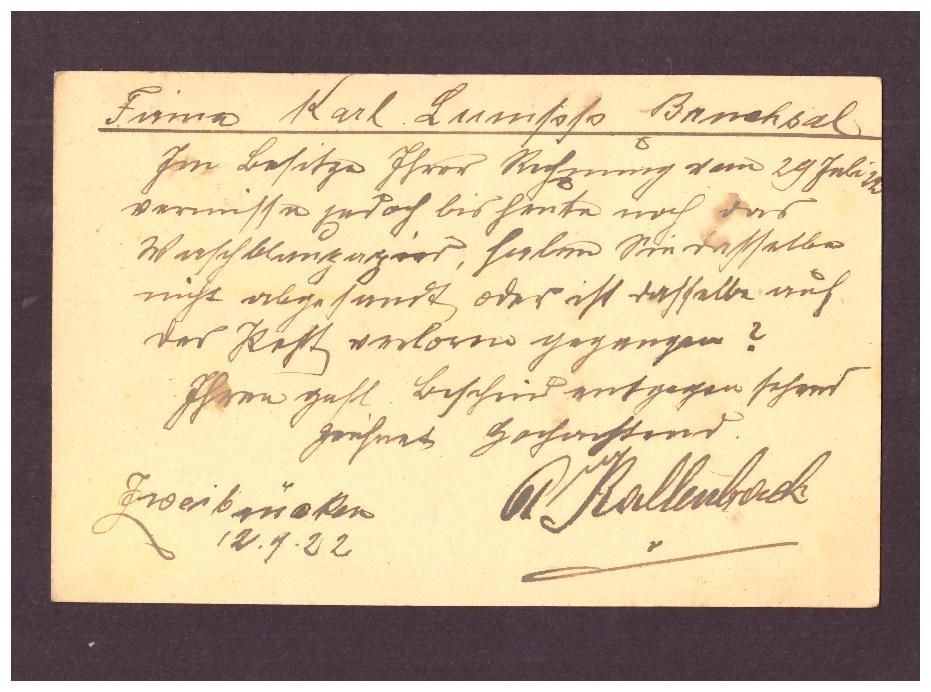 Firma Karl Lumpp Bruchsal
Im Besitze Ihrer Rechnung vom 29 Juli 22
vermisse jedoch bis heute noch das
Waschblaupapier, haben Sie dasselbe
nicht abgesandt, oder ist dasselbe auf
der Post verloren gegangen?
Ihren gefl. Bescheid entgegen sehend
zeichnet Hochachtend.
Kallenbach
Zweibrücken
12.9.22